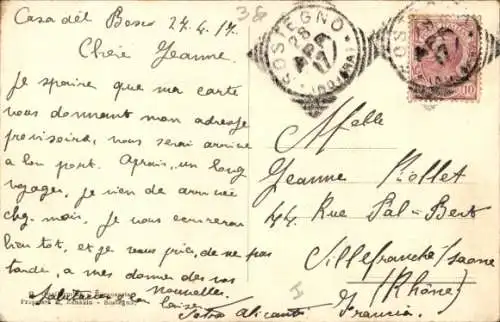 Casa del Bosco 27.4.17
38
Chère Jeanne
Je spaire que ma carte
vous donnant mon adresse
provisoire, vous serai arrivée
a bon port. Aprais, un long
voyages, je vien de arrivée
chez moi. Je vous ecrirerai
bien tot, et je vous prie, de ne pas
tarder, a me donner de vos
nouvelles.
Salutation
SOSTEGNO
28
APR
17
(NOVARA)
10
Melle
Jeanne Piollet
44 Rue Pal-Bert
Villefranche s/Saone
(Rhône)
Francia